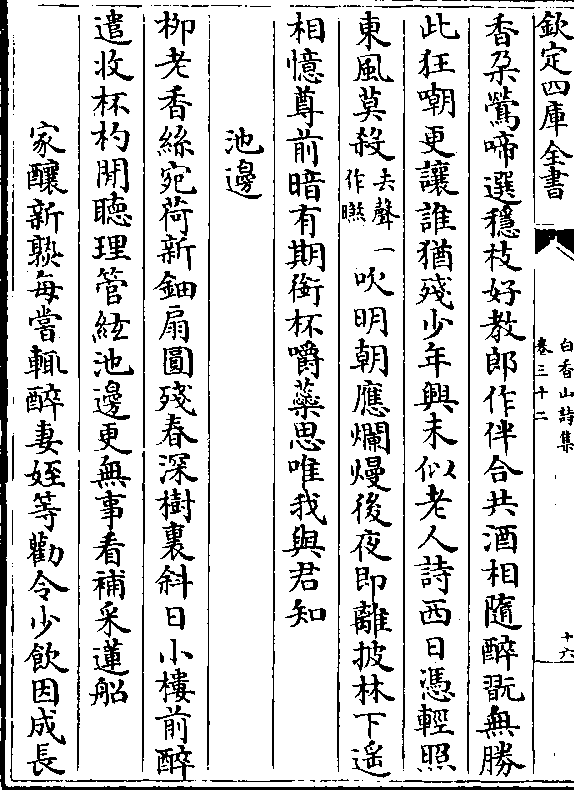 欽定四庫全書
白香山詩集
卷三十二
十六
香朶鶯啼選穩枝好教郎作伴合共酒相隨醉翫無勝
此狂嘲更讓誰猶殘少年興未似老人詩西日憑輕照
東風莫殺去聲一作㬠吹明朝應爛熳後夜即離披林下遥
相憶尊前暗有期銜杯嚼蘂思唯我與君知
池邊
柳老香絲宛荷新鈿扇圓殘春深樹裏斜日小樓前醉
遣收杯杓閒聽理管絃池邊更無事看補采蓮船
家釀新熟每嘗輒醉妻姪等勸令少飲因成長